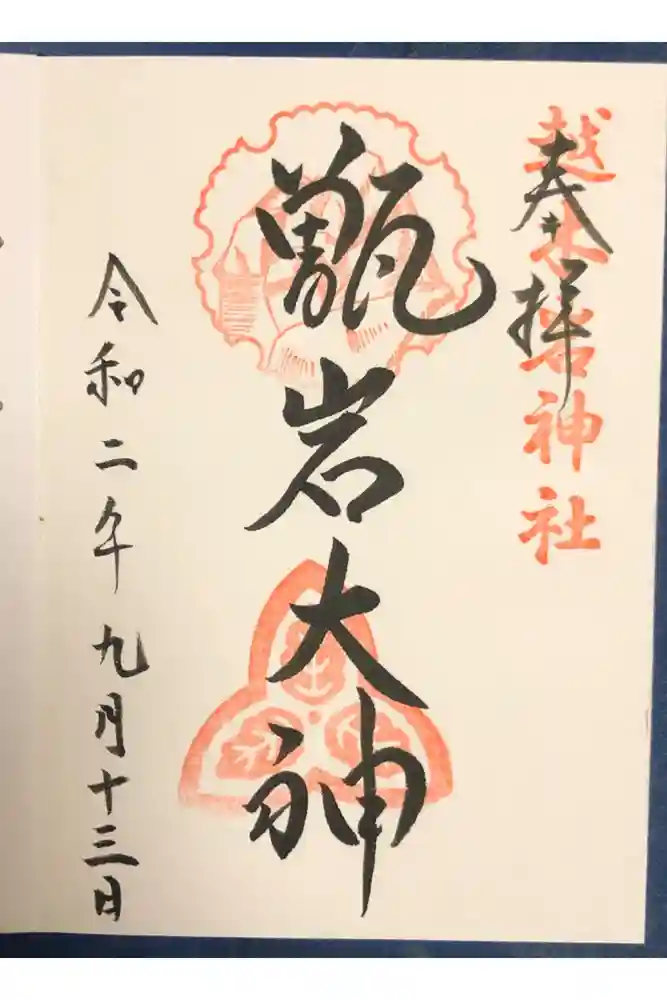 越木岩神社
奉拝
甑岩大神
令和二年九月十三日